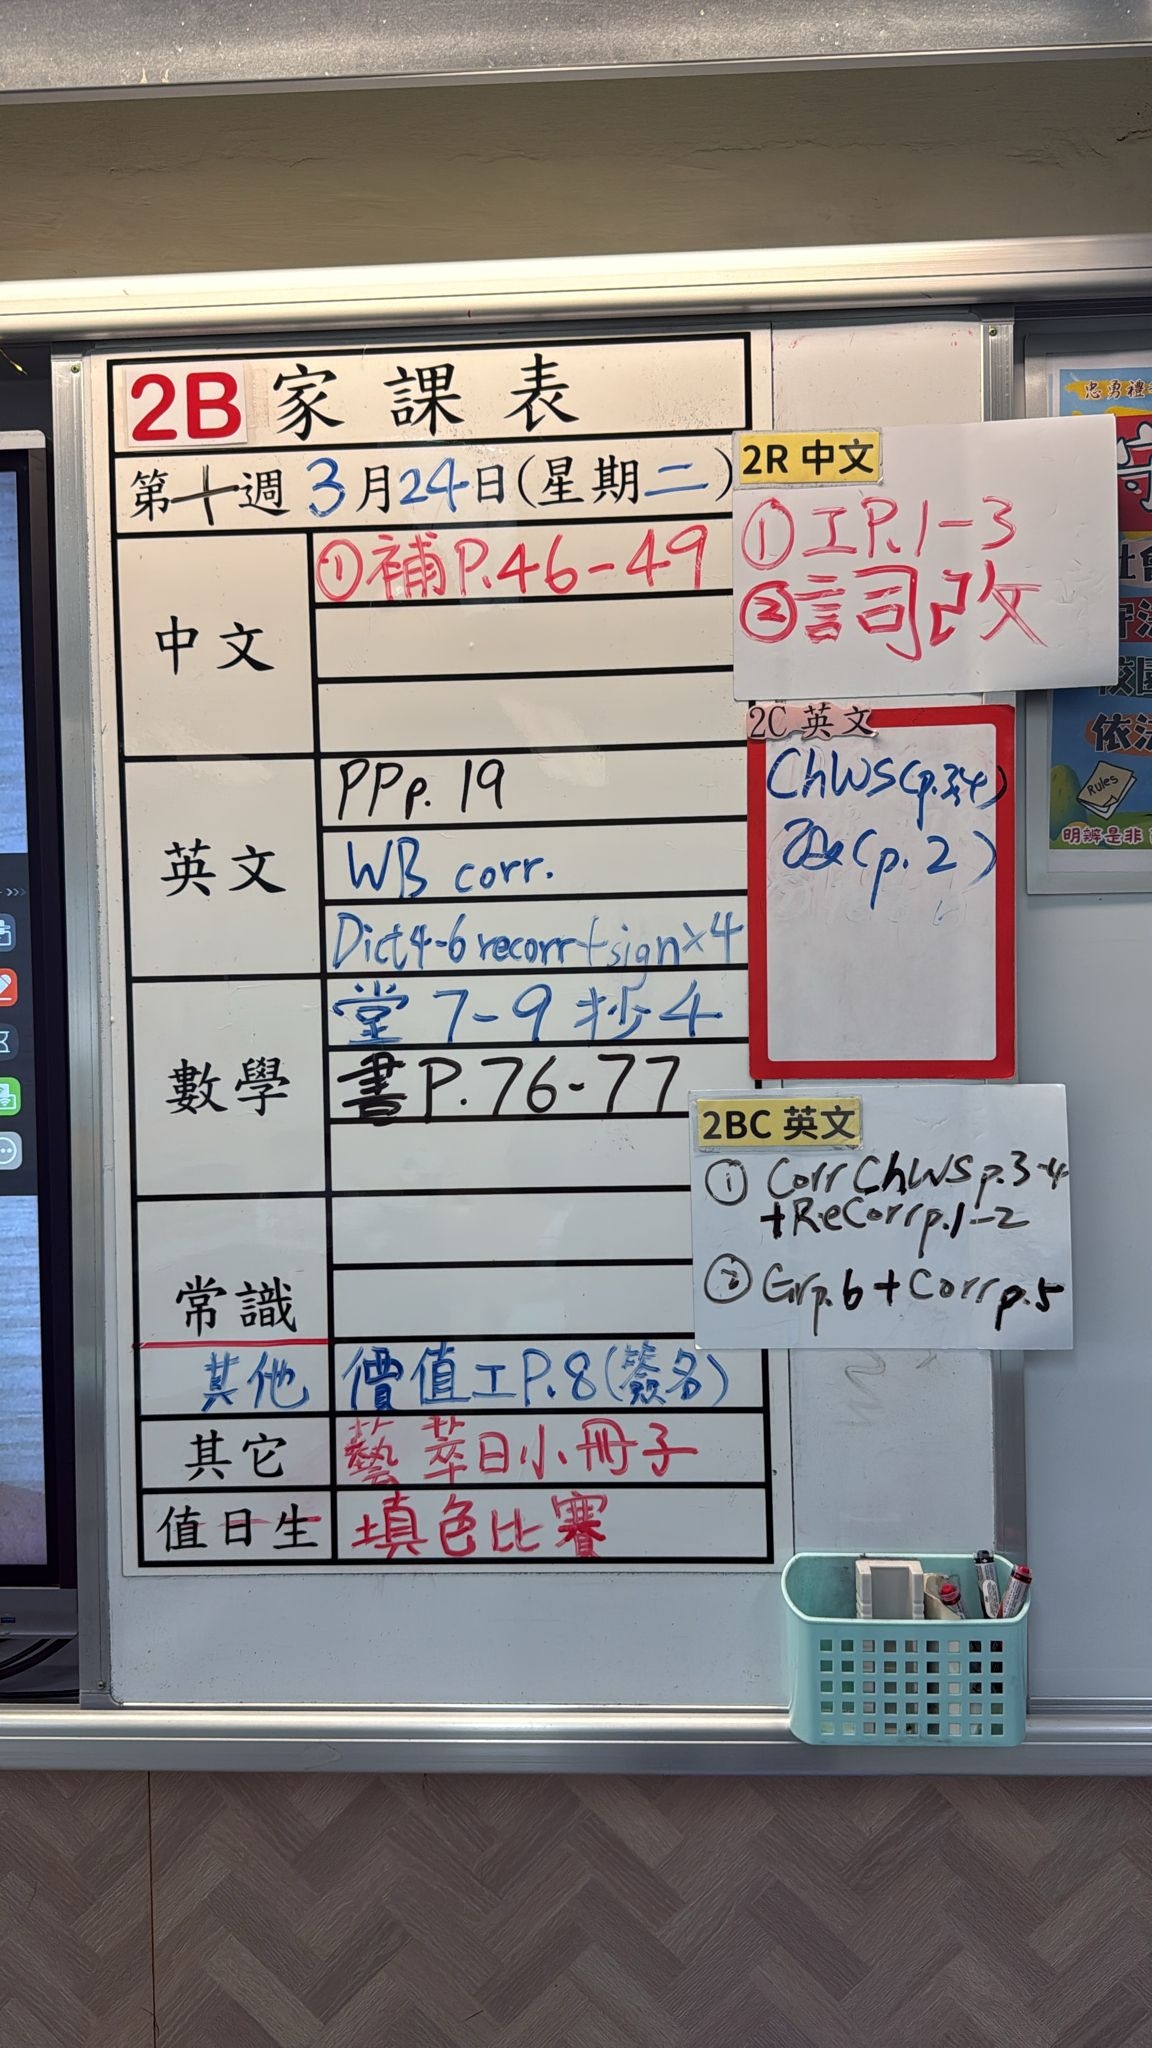 2B 家課表
第十週 3月24日(星期二)
中文
①補P.46-49
英文
PPp. 19
WB corr.
Dict4-6 recorr+sign×4
數學
堂 7-9 抄4
書P.76-77
常識
其他
價值工P.8(簽名)
其它
藝萃日小冊子
值日生
填色比賽
2R 中文
①工P.1-3
②詞改
2C 英文
ChWS(p.3,4)
改(p.2)
2BC 英文
① Corr ChWSp.3-4
+ReCorrp.1-2
② Grp.6+Corrp.5
忠勇禮
守
社會
守法
校園
依法
Rules
明辨是非